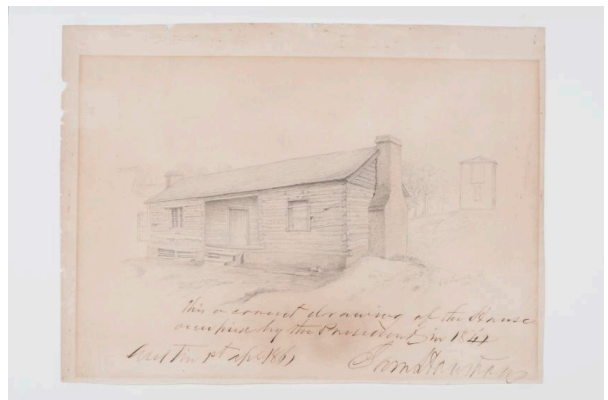 this a correct drawing of the House
occupied by the President in 1841
Austin 1st apl 1861 Sam Houston